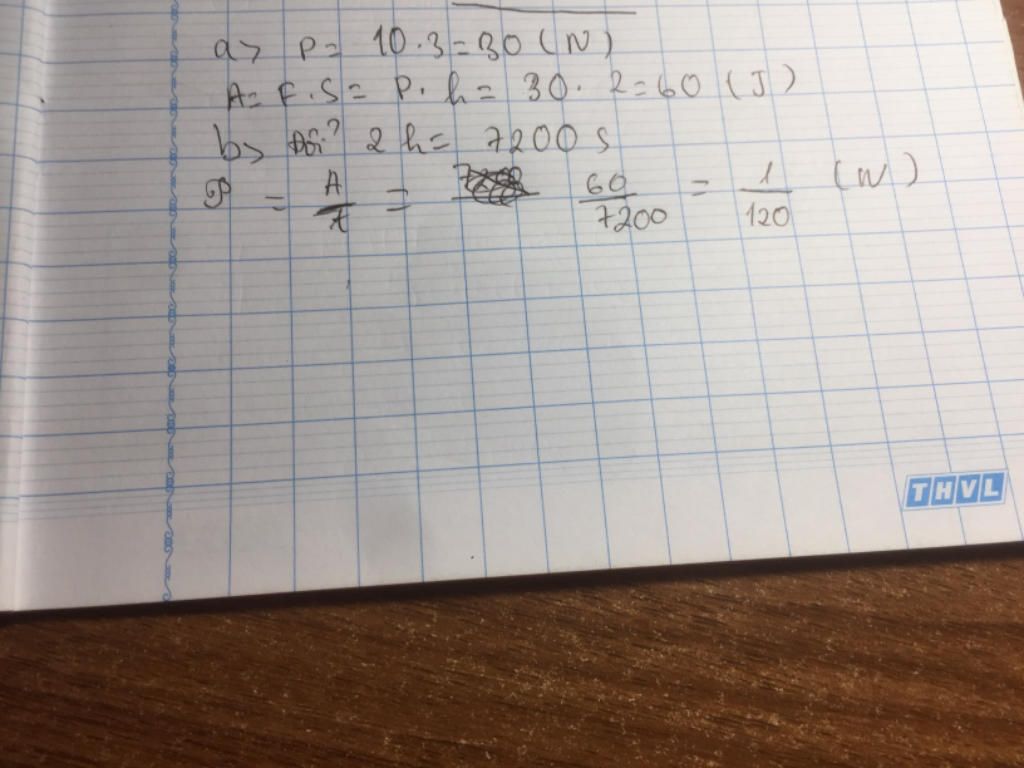 a> P = 10 . 3 = 30 (N)
A = F . S = P . h = 30 . 2 = 60 (J)
b> Đổi 2 h = 7200 s
P = A/t = 60/7200 = 1/120 (W)
THVL